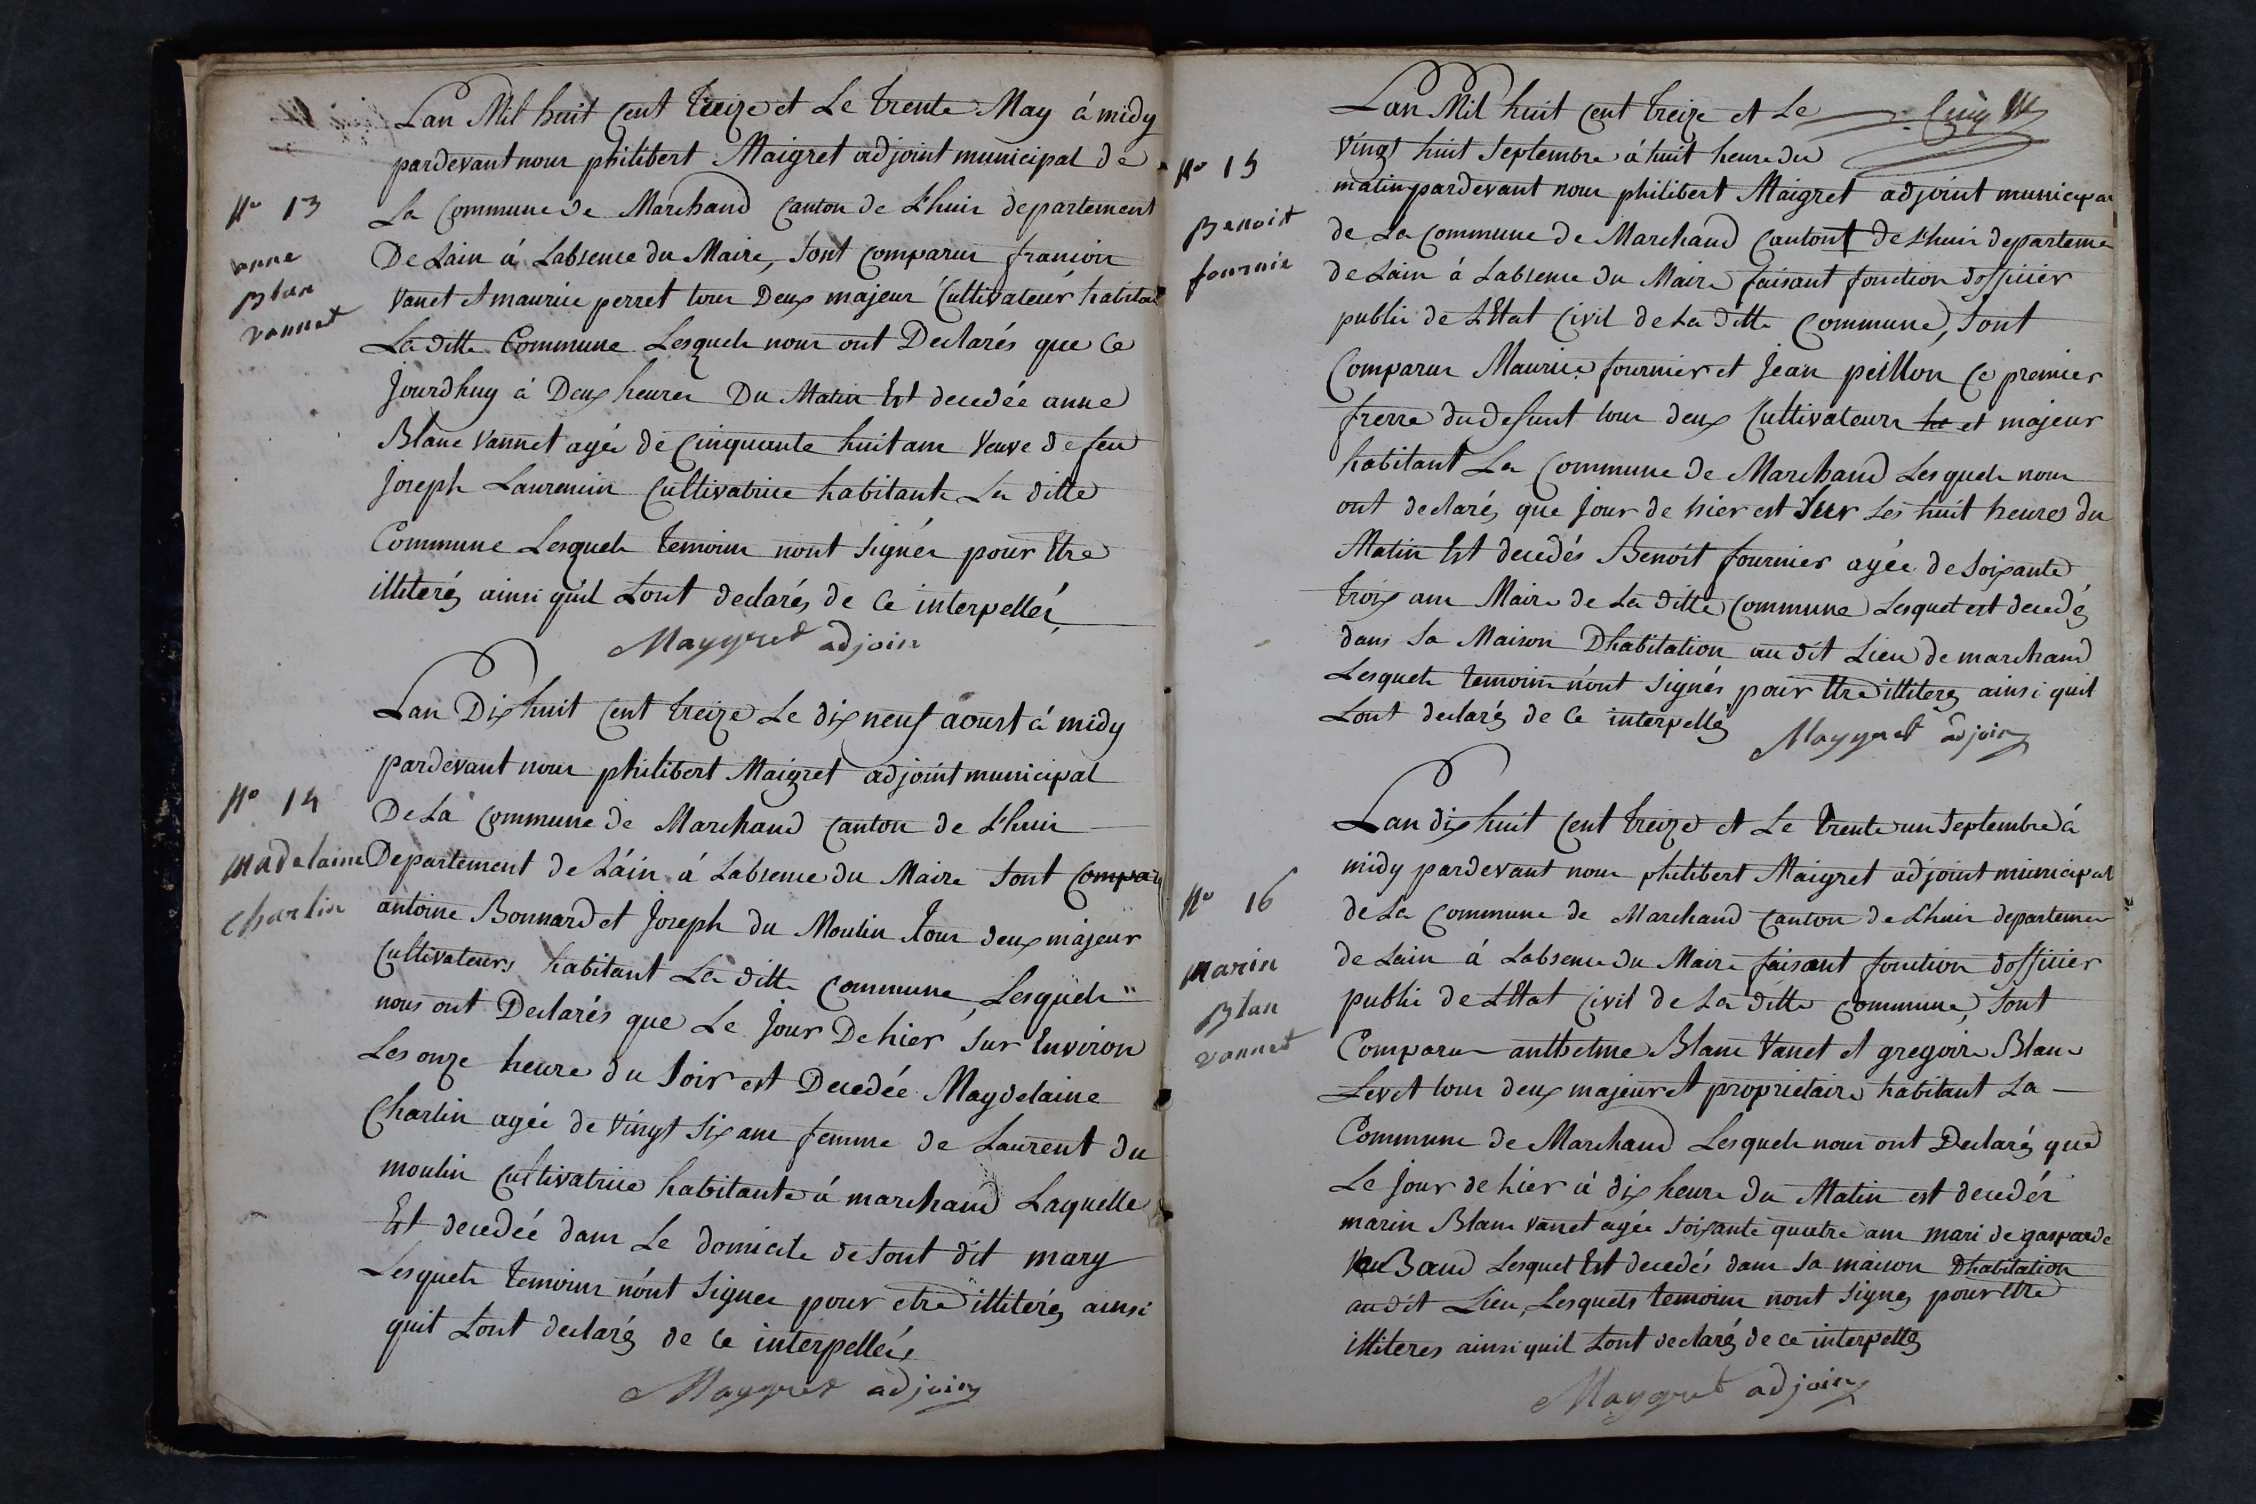 Lan Mil huit Cent treize et Le trente May á midy
pardevant nous philibert Maigret adjoint municipal de
N° 13
La Commune de Marchand Canton de Lhuis departement
De Lain á Labsence du Maire, sont Comparus francois
anne
Blan
vannet
Vanet et maurice perret tous Deux majeur Cultivateur habitant
La ditte Commune Lesquels nous ont Declarés que Ce
Jourdhuy á Deux heures Du Matin Est decedée anne
Blanc Vannet agée de Cinquante huit ans Veuve de feu
Joseph Laurencin Cultivatrice habitante La ditte
Commune Lesquels temoins nont Signés pour Etre
illiterés ainsi quil Lont declarés de Ce interpellés
Maygret adjoin
Lan Dix huit Cent treize Le dix neuf aoust á midy
pardevant nous philibert Maigret adjoint municipal
N° 14
De La Commune de Marchand Canton de Lhuis
Madelaine
Charlin
Departement de Láin á Labsence du Maire sont Comparus
antoine Bonnard et Joseph du Moulin tous deux majeur
Cultivateurs habitant La ditte Commune, Lesquels
nous ont Declarés que Le Jour De hier Sur Environ
Les onze heure du Soir est Decedée Magdelaine
Charlin agée de Vingt Six ans femme de Laurent du
moulin Cultivatrice habitante á marchand Laquelle
Est decedée dans Le domicile de sont dit mary
Lesquels temoins nont Signer pour etre illiterés ainsi
quil Lont declarés de Ce interpellés
Maygret adjoin
Lan Mil huit Cent treize et Le
Cinq
Vingt huit Septembre á huit heure du
N° 15
matin pardevant nous philibert Maigret adjoint municipal
Benoist
fournie
de La Commune de Marchand Canton de Lhuis departeme
de Lain á Labsence du Maire faisant fonction dofficier
public de LEtat Civil de La ditte Commune, sont
Comparus Maurice fournier et Jean peillon Ce premier
frerre du defunt tous deux Cultivateurs ha et majeur
habitant La Commune de Marchand Lesquels nous
ont declarés que Jour de hier est Sur Les huit heures du
Matin Est decedés Benoit fournier agée de Soixante
trois ans Maire de La ditte Commune Lesquel est decedés
dans Sa Maison Dhabitation au dit Lieu de marchand
Lesquels temoins nont Signés pour Etre illiteres ainsi quil
Lont declarés de Ce interpellés
Maygret adjoin
Lan dix huit Cent treize et Le trente un Septembre á
midy pardevant nous philibert Maigret adjoint municipal
N° 16
de La Commune de Marchand Canton de Lhuis departemen
Marin
Blan
vannet
de Lain á Labsence du Maire faisant fonction dofficier
public de LEtat Civil de La ditte Commune, sont
Comparus anthelme Blanc Vanet et gregoire Blanc
Levet tous deux majeur et proprietaire habitant La
Commune de Marchand Lesquels nous ont Declarés que
Le Jour de hier á dix heure du Matin est decedér
marin Blanc Vanet agée soixante quatre ans mari de gasparde
Baud Lesquel Est decedés dans Sa maison Dhabitation
au dit Lieu, Lesquels temoins nont Signés pour Etre
illiteres ainsi quil Lont declarés de ce interpellés
Maygret adjoin